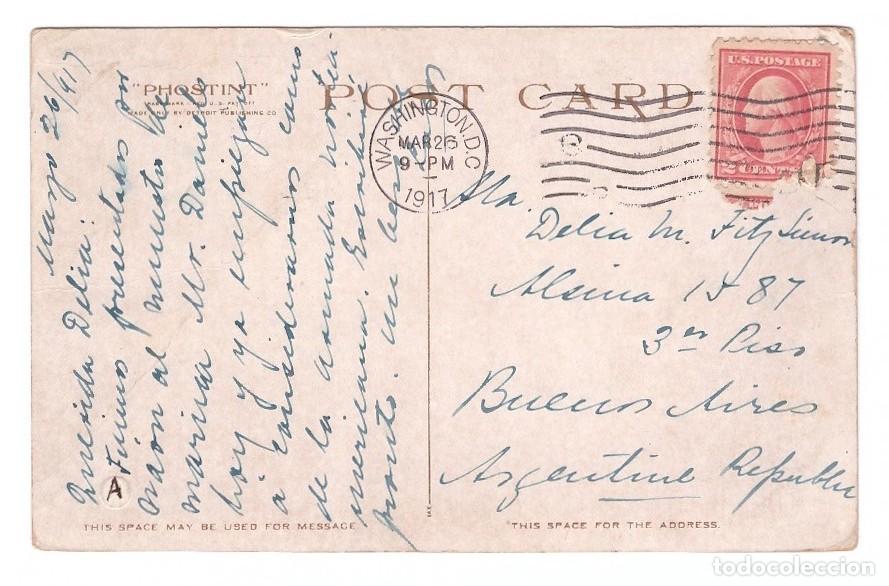 "PHOSTINT"
MADE ONLY BY DETROIT PUBLISHING CO.
POST CARD
U.S. POSTAGE
2 CENTS
WASHINGTON, D.C.
MAR 26
9 - PM
1917
Marzo 26/917
Querida Delia:
Fuimos presentados por
al ministro de
marina Mr. Daniels
hoy y ya empiezan
a considerarnos como
de la armada norte-
americana. Escribiré
pronto. Un
Sta.
Delia M. Fitz Simon
Alsina 1587
3er Piso
Buenos Aires
Argentine Republic
A
THIS SPACE MAY BE USED FOR MESSAGE
THIS SPACE FOR THE ADDRESS.
todocoleccion